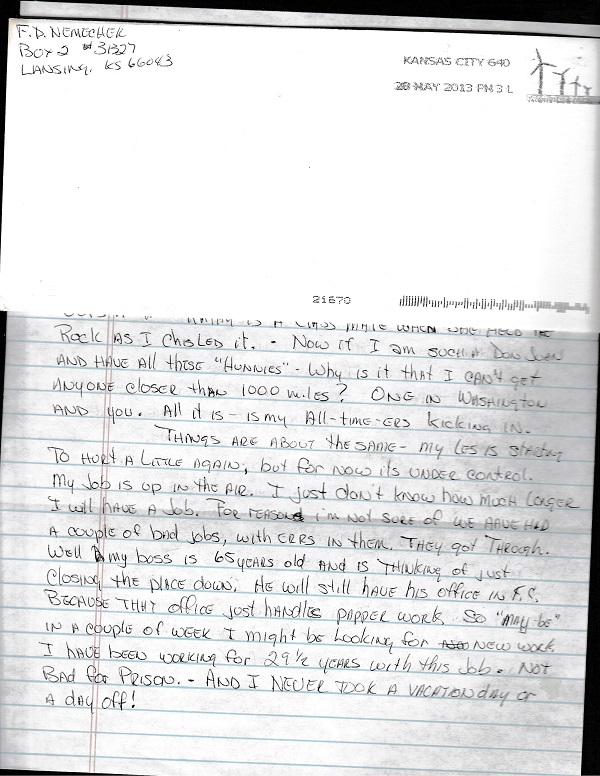 F.D. NEMECHEK
BOX 2 #31327
LANSING, KS 66043
KANSAS CITY 640
28 MAY 2013 PM 3 L
21670
IS A CLASS MATE WHEN SHE HELD THE
Rock AS I CHISLED it. - NOW if I AM SUCH A DON JUEN
AND HAVE All THESE "HUNNIES" - Why is it THAT I CAN'T GET
ANYONE CLOSER THAN 1000 MILES? ONE IN WASHINGTON
AND you. All it is - is my All-TIME-ERS KICKING IN.
THINGS ARE ABOUT the SAME - my LEG IS STARTING
TO HURT A LITTLE AGAIN, but for NOW its UNDER CONTROL.
My Job is UP IN THE AIR. I just don't know how MUCH LONGER
I will HAVE A Job. FOR REASONS i'm NOT SURE of WE HAVE HAD
A COUPLE of bad jobs, WITH ERRS IN THEM. THEY GOT THROUGH.
WELL my boss is 65 YEARS old AND IS THINKING of just
CLOSING THE PLACE DOWN. HE will STILL HAVE his OFFICE IN
BECAUSE THAT OFFICE just HANDLES PAPPER WORK. SO "MAY-BE"
IN A COUPLE of WEEK I might be Looking for NEW WORK.
I HAVE BEEN WORKING for 29 1/2 YEARS WITH this Job. NOT
BAD for PRISON. - AND I NEVER TOOK A VACATION DAY or
A day off!